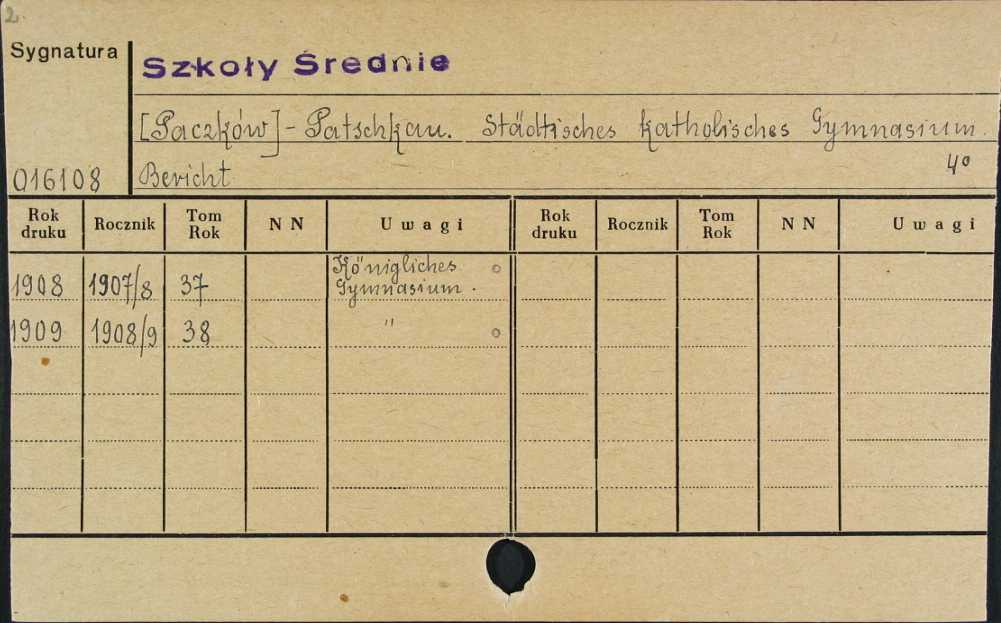 2.
Sygnatura
Szkoły Średnie
[Paczków] - Patschkau. Städtisches katholisches Gymnasium.
Bericht 4°
016108
Rok druku Rocznik Tom Rok N N Uwagi Rok druku Rocznik Tom Rok N N Uwagi
1908 1907/8 37 Königliches Gymnasium. o
1909 1908/9 38 " o